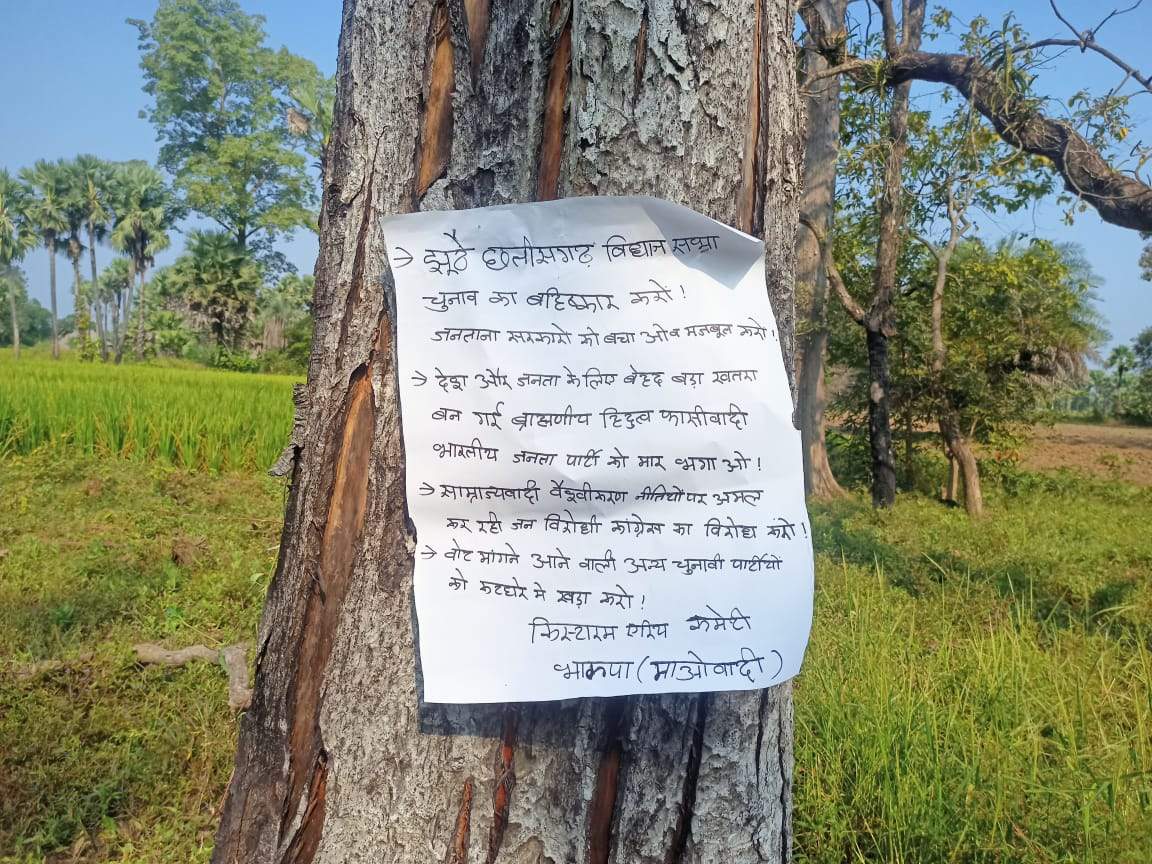 → झूठे छत्तीसगढ़ विधान सभा
चुनाव का बहिष्कार करो!
जनताना सरकारो को बचा ओ व मजबूत करो!
→ देश और जनता के लिए बेहद बड़ा खतरा
बन गई ब्राह्मणीय हिंदुत्व फासीवादी
भारतीय जनता पार्टी को मार भगा ओ!
→ साम्राज्यवादी वैश्वीकरण नीतियों पर अमल
कर रही जन विरोधी कांग्रेस का विरोध करो!
→ वोट मांगने आने वाली अन्य चुनावी पार्टीयों
को कटघरे मे खड़ा करो!
किस्टारम एरिया कमेटी
भाकपा (माओवादी)